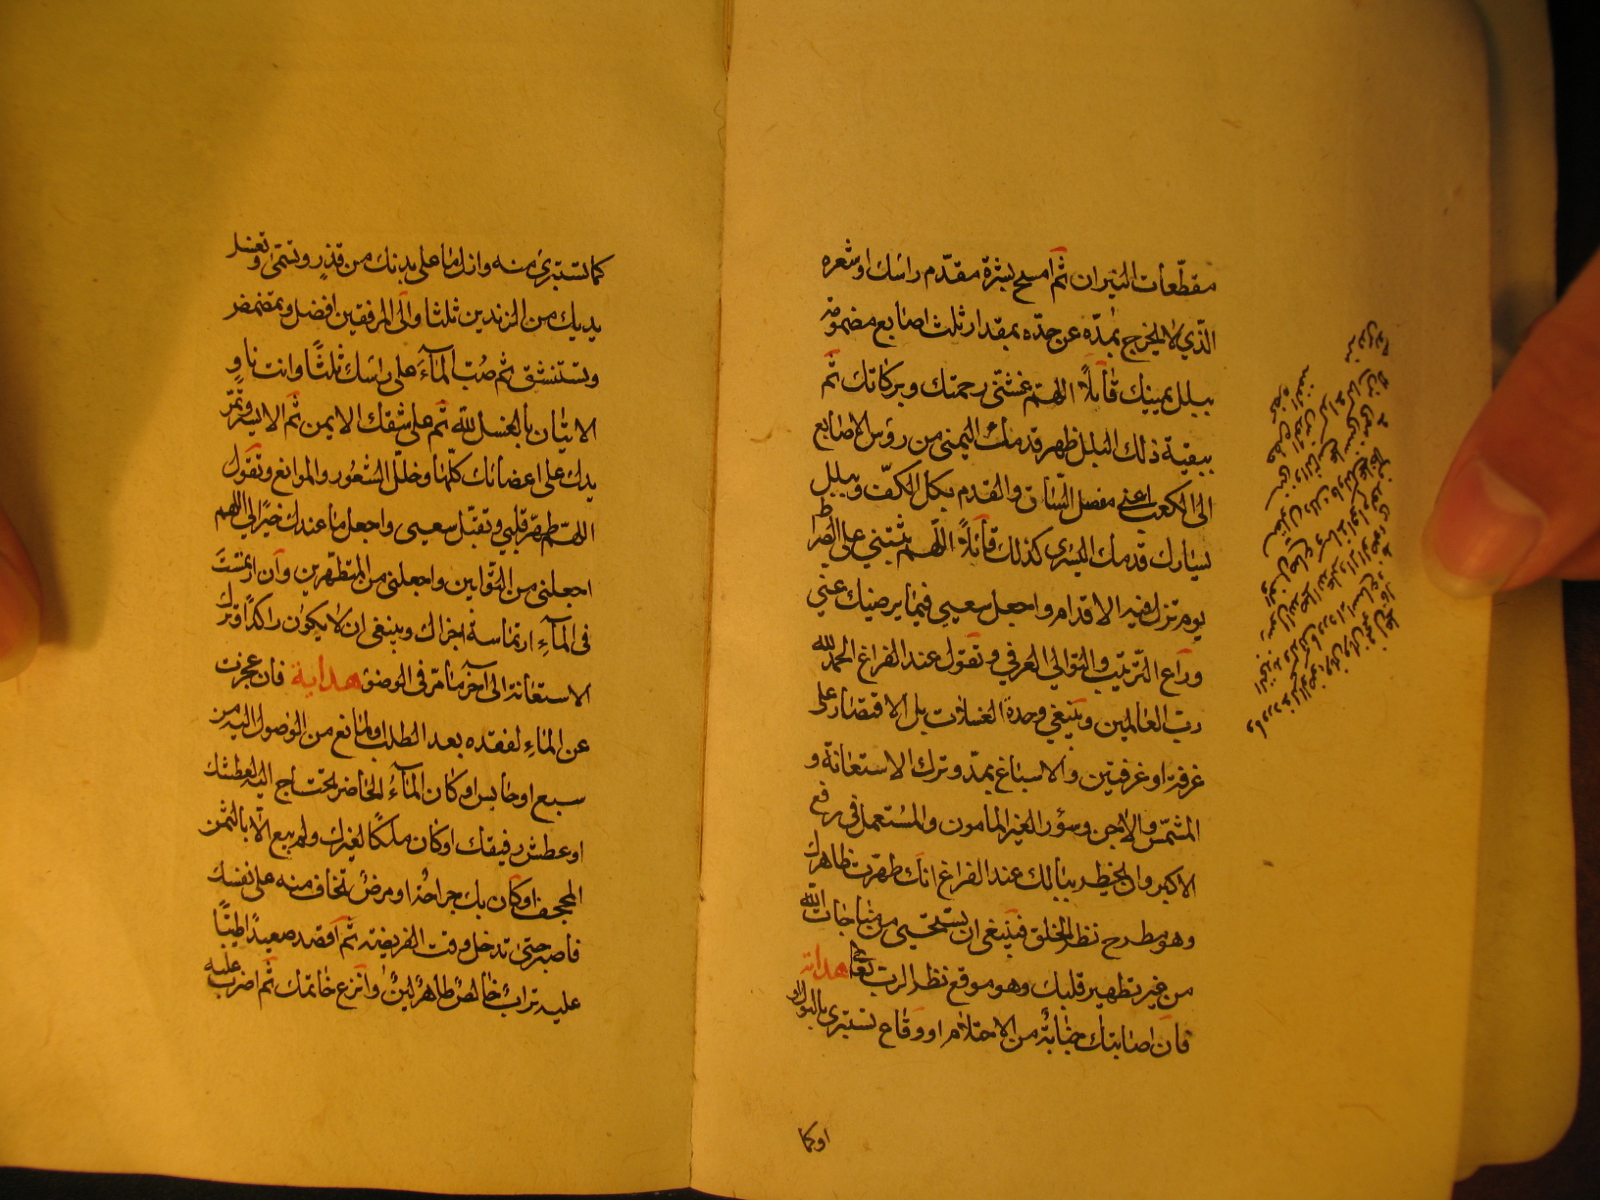 مقطّعات النيران ثم امسح بشرة مقدّم راسك او شعره
الذي لا يخرج بمدّه عن حدّه بمقدار ثلث اصابع مضمومة
ببلل يمينك قائلاً اللهم غشني رحمتك وبركاتك ثم
ببقية ذلك البلل ظهر قدمك اليمنى من رؤس الاصابع
الى الكعب اعني مفصل الساق والقدم بكل الكف وببلل
يسارك قدمك اليسرى كذلك قائلاً اللهم ثبتني على الصراط
يوم تزل فيه الاقدام واجعل سعيي فيما يرضيك عني
وراع الترتيب والتوالي العرفي وتقول عند الفراغ الحمد لله
رب العالمين وينبغي وحدة الغسلات بل الاقتصار على
غرفة او غرفتين والاسباغ بمد وترك الاستعانة و
المشمس والاجن وسؤر الغير المامون والمستعمل في رفع
الاكبر وان يخطر ببالك عند الفراغ انك طهرت ظاهرك
وهو مطرح نظر الخلق فينبغي ان تستحيي من مناجات الله
من غير تطهير قلبك وهو موقع نظر الرب تعالى هداية
فان اصابتك جنابة من الاحتلام او وقاع تستبرئ بالبول
اوكما
كما تستبرئ منه وازل ما على بدنك من قذر وتسمي وتغسل
يديك من الزندين ثلثا والى المرفقين افضل وتمضمض
وتستنشق ثم صب الماء على راسك ثلثا وانت ناو
الاتيان بالغسل لله ثم على شقك الايمن ثم الايسر وتمر
يدك على اعضائك كلها وخلل الشعور والموانع وتقول
اللهم طهر قلبي وتقبل سعيي واجعل ما عندك خيرا لي اللهم
اجعلني من التوابين واجعلني من المتطهرين وان ارتمست
في الماء ارتماسة اجزاك وينبغي ان لا يكون راكدا وترك
الاستعانة الى آخر ما مر في الوضوء هداية فان عجزت
عن الماء لفقده بعد الطلب او لمانع من الوصول اليه من
سبع او حابس او كان الماء الحاضر تحتاج اليه لعطشك
او عطش رفيقك او كان ملكا لغيرك ولم يبع الا بالثمن
المجحف او كان بك جراحة او مرض تخاف منه على نفسك
فاصبر حتى تدخل وقت الفريضة ثم اقصد صعيدا طيبا
عليه تراب خالص طاهر لين وانزع خاتمك ثم اضرب عليه